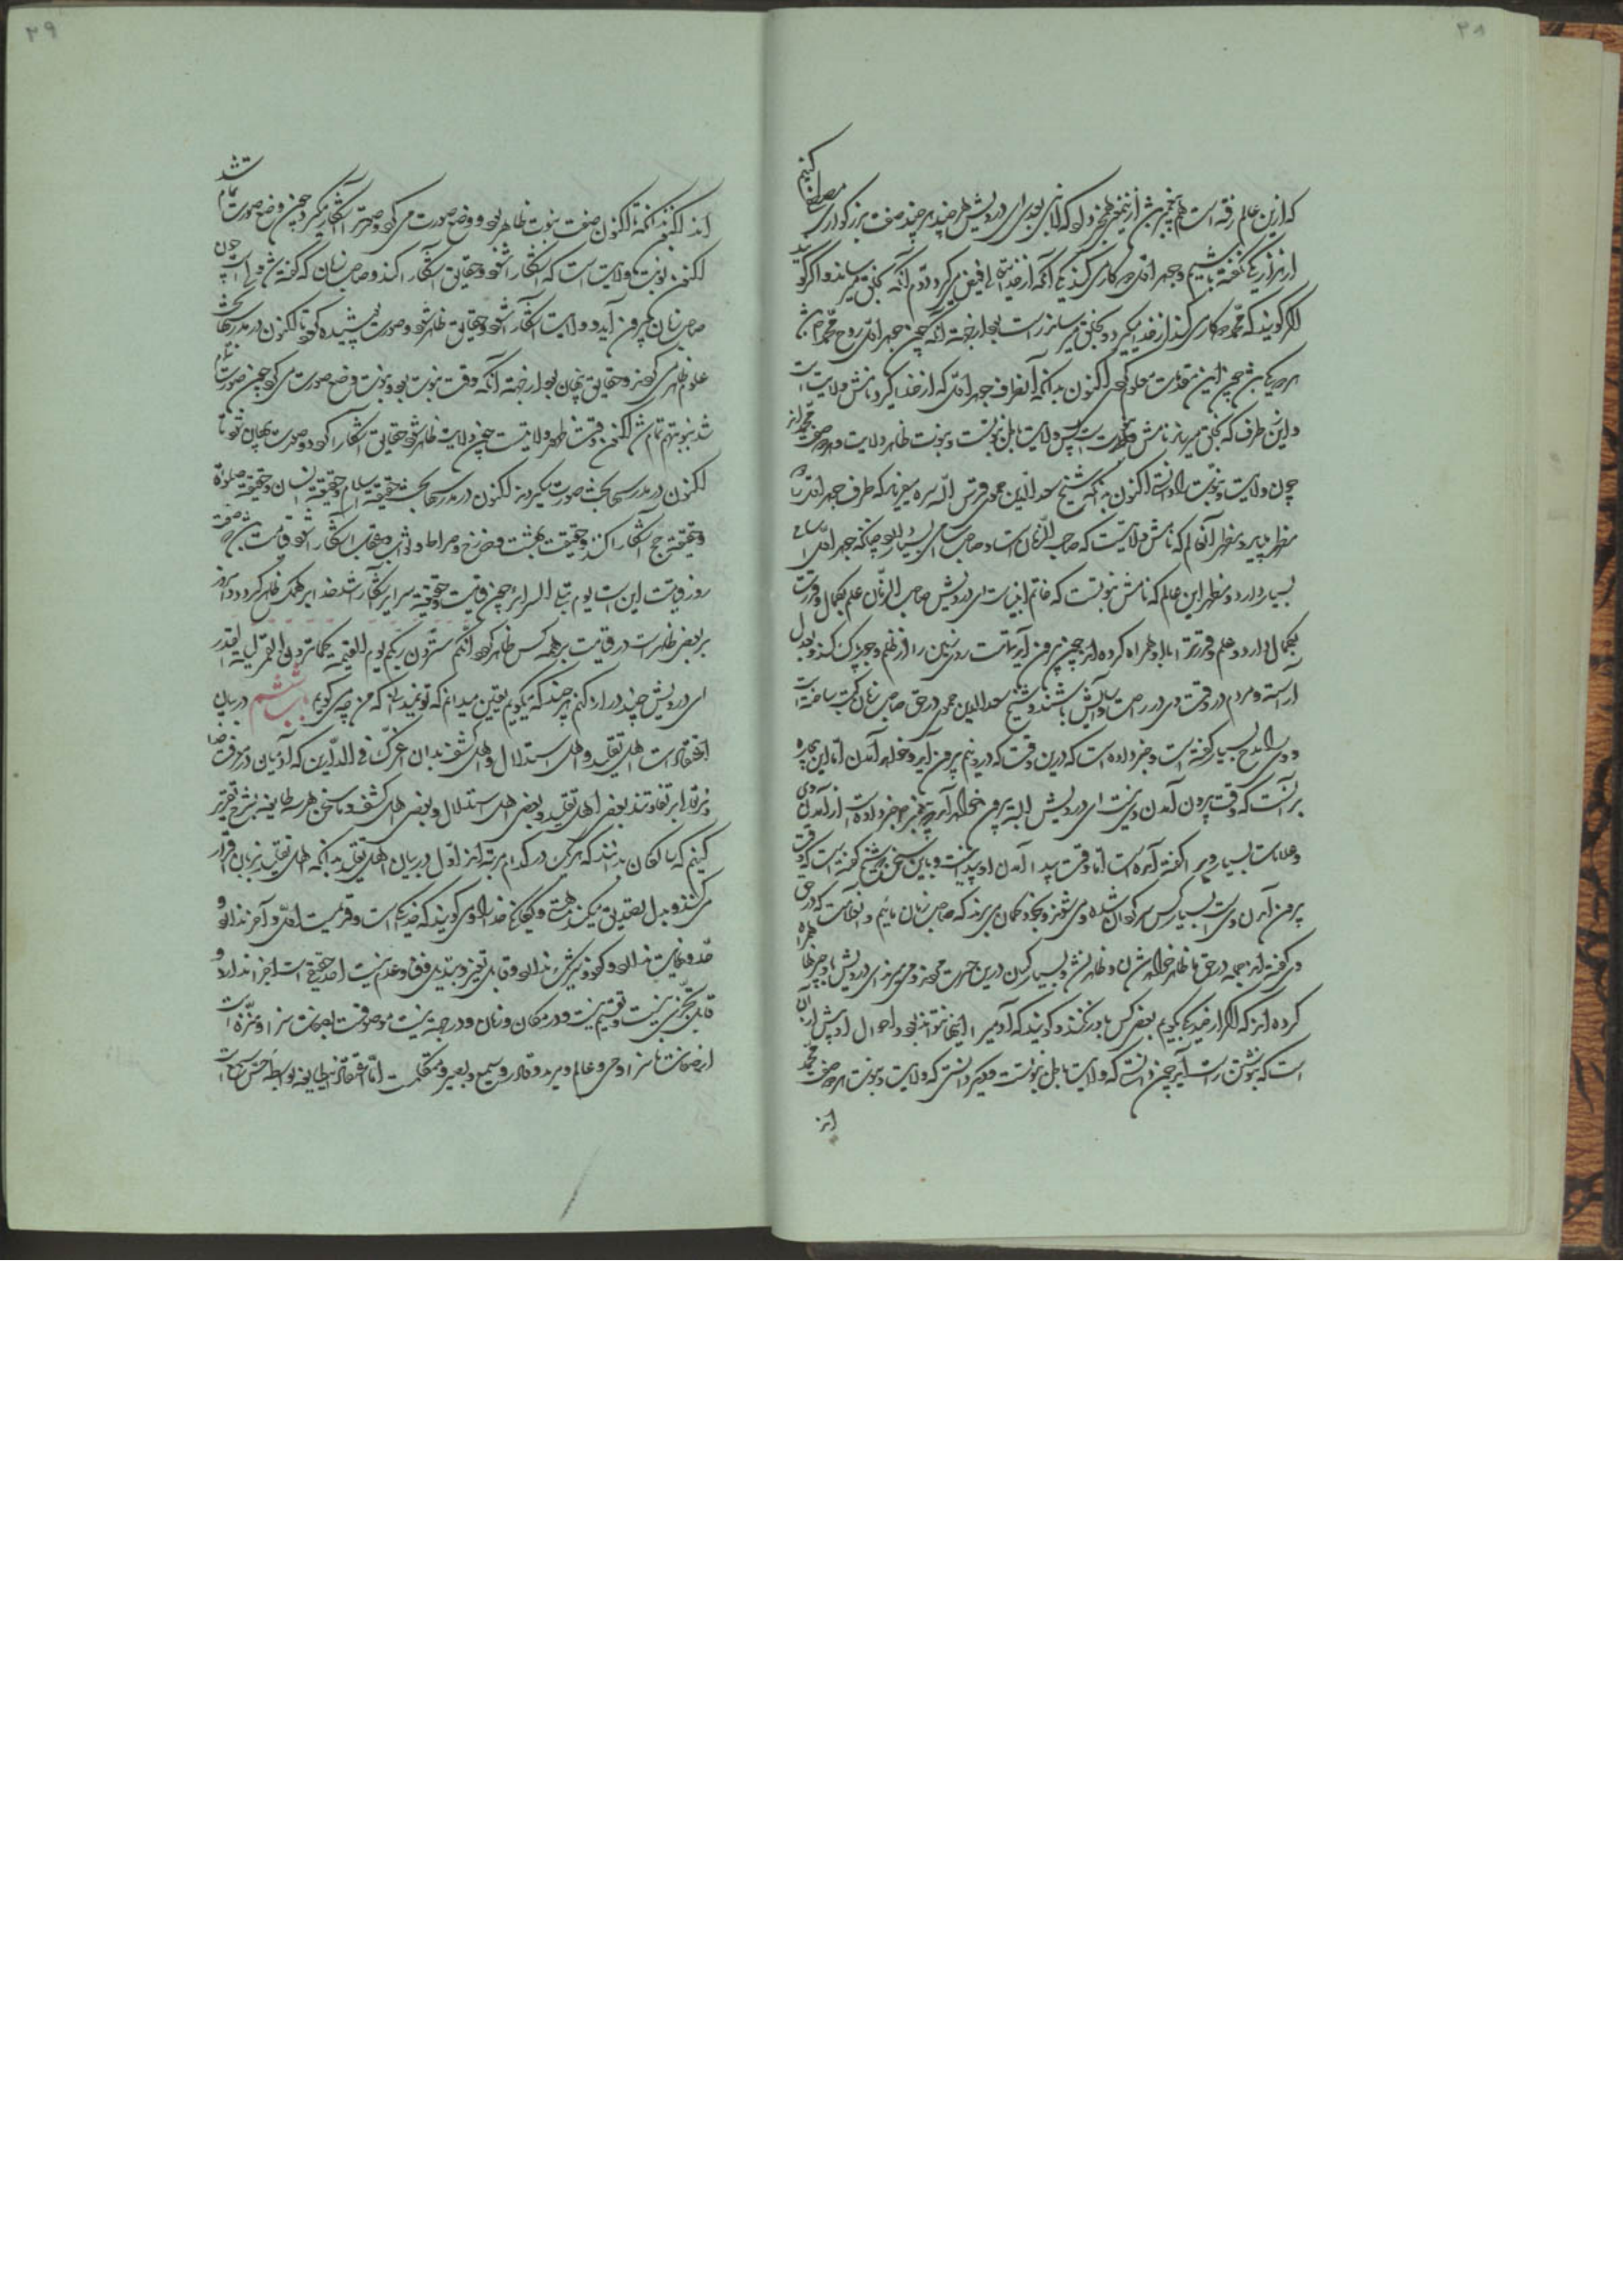 ۳۸
که ازین عالم رفته است هم پیغمبر
ای درویش هر چند چند صفت بزرگواری مصطفی کنیم
از هزار یکی نگفته باشیم و جوهر اول دو کار می‌کند یکی آنکه از خدا فیض می‌گیرد و دوم آنکه بخلق میرساند و اگر گویند
اگر گویند که محمد دو کار می‌کند از خدا میگیرد و بخلق میرساند راست بود از جهت آنکه چون جوهر اول روح محمد
هر دو یکی باشد چون این مقدمات معلوم کردی اکنون بدانکه آنطرف جوهر اول که از خدا میگیرد نامش ولایت است
و این طرف که بخلق میرساند نامش نبوت است پس ولایت باطن نبوتست و نبوت ظاهر ولایت و هر دو صفت محمد اند
چون ولایت و نبوت را دانستی اکنون بدانکه شیخ سعد الدین حموی قدس الله سره میفرماید که هر دو طرف جوهر اول را
مظهر باید و مظهر آن عالم که نامش ولایتست که صاحب الزمان است و صاحب زمان اسامی بسیار دارد چنانکه جوهر اول اسامی
بسیار دارد و مظهر این عالم که نامش نبوتست که خاتم انبیاست ای درویش صاحب الزمان علم بکمال و قدرت
بکمال دارد و علم و قدرت را با او همراه کرده اند چون بیرون آید تمامت روی زمین را از ظلم و جور پاک کند و بعدل
آراسته و مردم در وقت وی در راحت و آسایش باشند و شیخ سعد الدین حموی در حق صاحب زمان کتب ساخته است
و وی را مدح بسیار گفته است و خبر داده است که درین وقت که در ویم بیرون آید و خواهد آمدن اما این بیچاره
بر آنست که وقت بیرون آمدن وی نیست ای درویش البته بیرون خواهد آمد که پیغمبر خبر داده است از آمدن وی
و علامات بسیار ویرا گفته آمده است اما وقت پیدا آمدن او پیدا نیست و باین سخن شیخ گفته است که وقت
بیرون آمدن وی است بسیار کس سرگردان شده
و بخود گمان می‌برند که صاحب زمان مائیم و آن علامت که در حق
وی گفته اند جمله در حق ما ظاهر خواهد شدن و ظاهر نشد و بسیار کسان درین حسرت مردند
ای درویش
کرده اند که اگر از صد یکی بگویم بعضی کس باور نکنند و گویند که آدمی را اینها نتواند بود و احوال او بیش از آن
است که بنوشتن راست آید چون دانستی که ولایت باطن نبوتست و دیگر دانستی که ولایت و نبوت هر دو صفت محمد
اند
۳۹
اند اکنون بدانکه تا اکنون صفت نبوت ظاهر بود و وضع صورت می‌کرد و صورت را آشکارا میکرد چون وضع صورت تمام شد
اکنون نوبت ولایت است که آشکارا شود و حقایق آشکارا کند و صاحب زمان که گفته شد ولی است چون
صاحب زمان بیرون آید و ولایت آشکارا شود و حقایق ظاهر شود و صورت پوشیده گردد تا اکنون در مدرسها بحث
علوم ظاهر می‌کردند و حقایق پنهان بود از جهت آنکه وقت نبوت بود و نبوت وضع صورت می‌کرد چون صورت تمام
شد نبوت هم تمام شد اکنون وقت ظهور ولایتست چون ولایت ظاهر شود حقایق آشکارا گردد و صورت پنهان شود تا
اکنون در مدرسها بحث صورت میکردند اکنون در مدرسها بحث حقیقت اسلام و حقیقت ایمان و حقیقت صلوة
و حقیقت حج آشکارا کنند و حقیقت بهشت و دوزخ و صراط و ثواب و عقاب آشکارا شود
روز قیامت این است یوم تبلی السرائر چون قیامت حقیقت سرایر آشکارا شد خدا بر همه کس ظاهر گردد و امروز
بر بعضی ظاهرست در قیامت بر همه کس ظاهر گردد انکم سترون ربکم یوم القیمة کما ترون القمر لیلة البدر
ای درویش چند دراز کنم هر چند که میگویم یقین میدانم که تو نمیدانی که من چه می گویم باب ششم در بیان
اعتقاد اهل تقلید و اهل استدلال و اهل کشف بدان اعزک الله فی الدارین که آدمیان در معرفت خدا
بر تفاوتند بعضی اهل تقلید و بعضی اهل استدلال و بعضی اهل کشف و ما سخن هر سه طایفه بشرح تقریر
کنیم که تا سالکان بدانند که هر یک در کدام مرتبه اند اول در بیان اهل تقلید بدانکه اهل تقلید بزبان اقرار
می کنند و بدل تصدیق میکنند هستی و یگانگی خدا را و می گویند که خدا یکی است و قدیمست اول و آخر ندارد و
حد و نهایت ندارد و کفو و شریک ندارد و قابل تغیر و تبدیل و فنا و عدم نیست احد حقیقی است اجزا ندارد و
قابل تجزی نیست و تقسیم نیست و در مکان و زمان و در جهة نیست موصوفست بصفات سزا و منزه است
از صفات ناسزا و حی و عالم و مرید و قادر و سمیع و بصیر و متکلم است اما اعتقاد این طایفه بواسطه حس سمع است